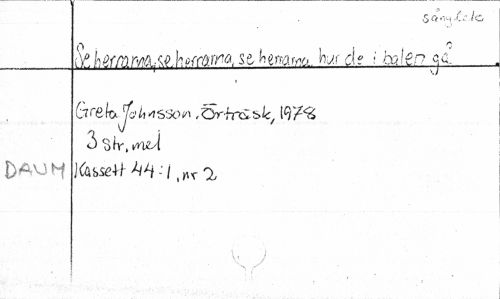 sånglek
Se herrarna, se herrarna, se herrarna hur de i balen gå
Greta Johnsson, Örträsk, 1978
3 str, mel
DAUM Kassett 44:1, nr 2